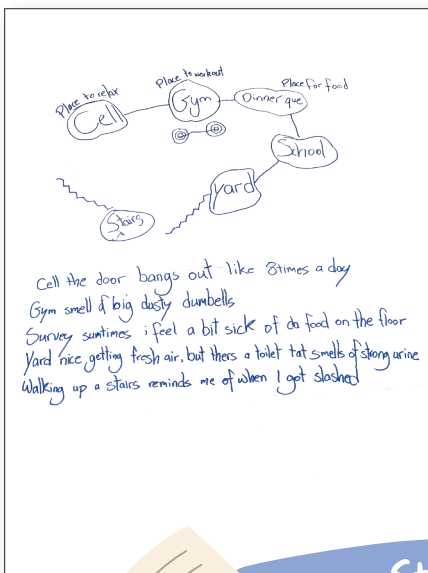 Place to relax
Cell
Place to workout
Gym
Place for food
Dinner que
School
yard
Stairs
Cell the door bangs out like 8 times a day
Gym smell of big dusty dumbells
Survey sumtimes i feel a bit sick of da food on the floor
Yard nice getting fresh air, but thers a toilet tat smells of strong urine
Walking up a stairs reminds me of when I got slashed
St